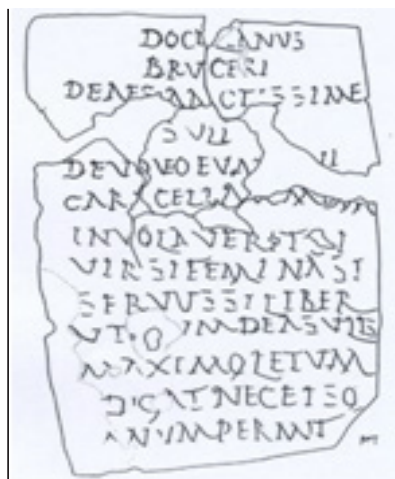 DOCILIANUS
BRUCERI
DEAE SANCTISSIME
SULI
DEVOVEO EUM
CARACELLAM
INVOLAVERIT SI
VIR SI FEMINA SI
SERVUS SI LIBER
UT UM DEA SULIS
MAXIMO LETUM
DIGAT NEC EI SO
NUM PERMIT